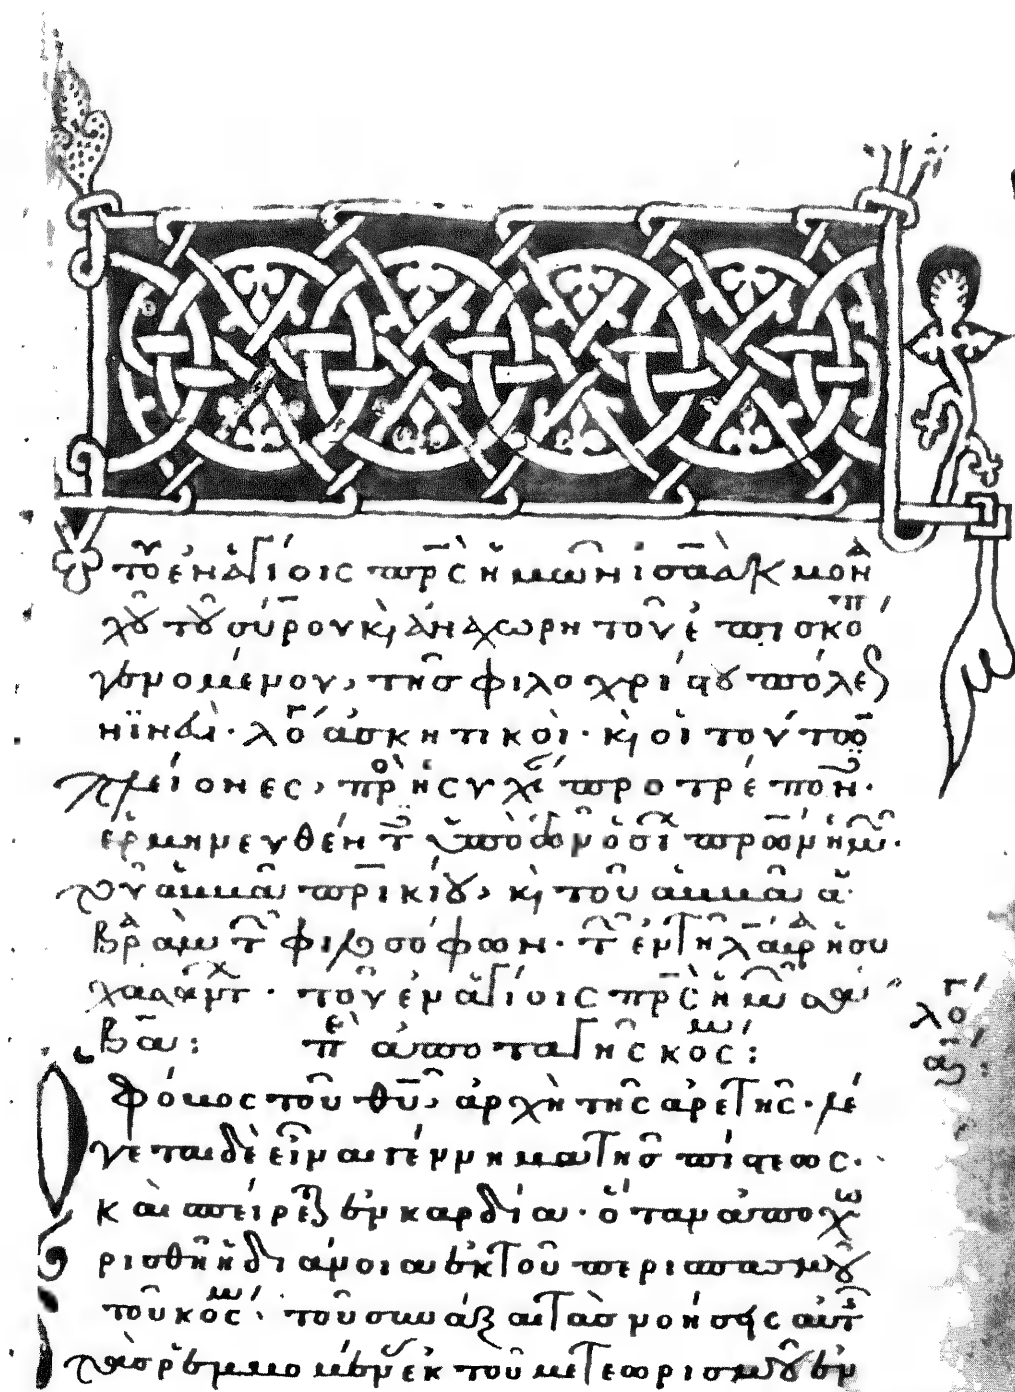 τοῦ ἐν ἁγίοις πρς ἡμῶν ἰσαὰκ μον
χοῦ τοῦ σύρου κὶ ἀναχωρητοῦ ἐπισκό
γενομένου, τῆς φιλοχρίστου πόλεως
νϊνευὶ· λόγοι ἀσκητικοὶ· κὶ οἱ τούτου
μείονες, πρὸς ἡσυχί προτρέπον·
ἑρμηνευθέν τ ὑπὸ τῶν ὁσί πρων ἡμῶν·
τοῦ ἀββᾶ πρικίου, κὶ τοῦ ἀββᾶ ἀ
βραμίου τ φιλοσόφων· τ ἐν τῆ λαύρα ἡσυ
χασάντ· τοῦ ἐν ἁγίοις πρς ἡμῶν σά
βα: π ἀποταγῆς κόσμ:
λόγ
α
φόβος τοῦ θυ, ἀρχὴ τῆς ἀρετῆς· λέ
γεται δὲ εἶναι γέννημα τῆς πίστεως·
καὶ σπείρεται ἐν καρδία· ὅταν ἀποχω
ρισθῆ ἡ διάνοια ἐκ τοῦ περισπασμοῦ
τοῦ κόσμ· τοῦ συνάξαι τὰς νοήσεις αὐτ
τὰς ῥεμβομένας ἐκ τοῦ μετεωρισμοῦ ἐν